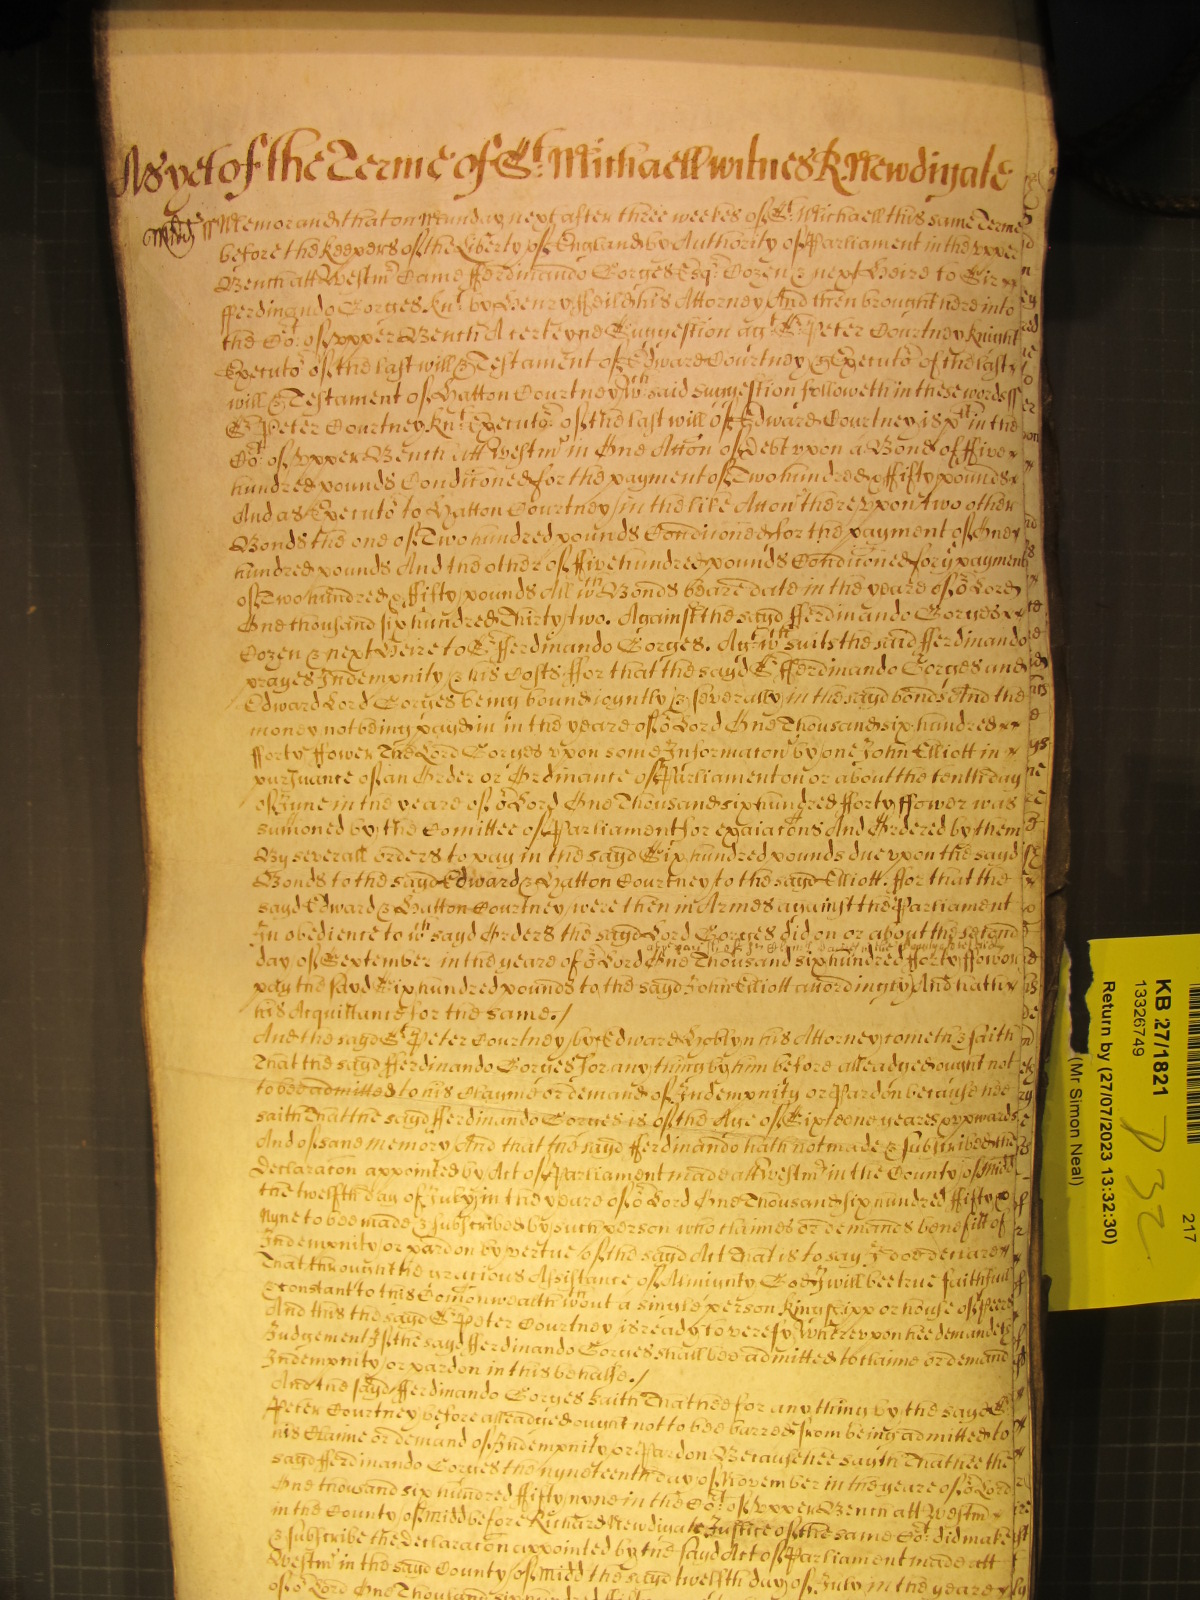 As yet of the Terme of St. Michaell witnes R. Newdigate
Midd ss Memorand that on Munday next after three weekes of St. Michaell this same Terme
before the Keepers of the Liberty of England by Authority of Parliament in the upper
Bench att Westmr Came Fferdinando Gorges Esqr Cozen & next Heire to Sir
fferdinando Gorges Knt by Henry Ffeild his Attorney And then brought here into
the Cort of upper Bench A certeyne Suggestion agt Sr Peter Courtney Knight
Executor of the last will & Testament of Edward Courtney & Executor of the last
will & Testament of Hatton Courtney wch said suggestion followeth in these words ss
Sr Peter Courtney Knt Executor of the last will of Edward Courtney is pt in the
Cort of upper Bench att Westmr in One Accon of Debt upon a Bond of ffive
hundred pounds Conditioned for the payment of Two hundred & ffifty pounds
And as Executor to Hatton Courtney in the like Accon thereupon two other
Bonds the one of Two hundred pounds Conditioned for the payment of One
hundred pounds And the other of ffive hundred pounds Conditioned for ye payment
of Two hundred & ffifty pounds All wch Bonds beare date in the yeare of or Lord
One thousand six hundred Thirty two. Against the sayd fferdinando Gorges
Cozen & next Heire to Sr fferdinando Gorges. Agt wch suits the said fferdinando
prayes Indempnity & his Costs ffor that the sayd Sr fferdinando Gorges and
Edward Lord Gorges being bound joyntly & severally in the sayd bonds And the
money not being payd in in the yeare of or Lord One Thousand six hundred
fforty ffower The Lord Gorges upon some Informacon by one John Elliott in
pursuance of an Order or Ordinance of Parliament on or about the tenth day
of June in the yeare of or Lord One Thousand six hundred fforty ffower was
sumoned by the Comittee of Parliament for
And Ordered by them
By severall orders to pay in the sayd Six hundred pounds due upon the sayd
Bonds to the sayd Edward & Hatton Courtney to the sayd Elliott. ffor that the
sayd Edward & Hatton Courtney were then in Armes against the Parliament
In obedience to wch sayd Orders the sayd Lord Gorges did on or about the second
day of September in the yeare of or Lord One Thousand six hundred fforty ffower
pay the sayd Six hundred pounds to the sayd John Elliott accordingly And hath
his Acquittance for the same./
And the sayd Sr Peter Courtney by Edward Hoblyn his Attorney cometh & saith
That the sayd fferdinando Gorges for any thing by him before alleadged ought not
to bee admitted to his Clayme or demand of Indempnity or Pardon because hee
saith That the sayd fferdinando Gorges is of the Age of Sixteene yeares & upwards
And of sane memory And that the sayd fferdinando hath not made & subscribed the
Declaracon appointed by Act of Parliament made att Westmr in the County of Midd
the twelfth day of July in the yeare of or Lord One Thousand six hundred ffifty
Nyne to bee made & subscribed by such person who claimes or demands benefitt of
Indempnity or pardon by vertue of the sayd Act That is to say I doe declare
That through the gracious Assistance of Almighty God I will bee true faithfull
& constant to this Comonwealth wthout a single person kingshipp or house of Peeres
And this the sayd Sr Peter Courtney is ready to verefy Whereupon hee demandeth
Judgement If the sayd fferdinando Gorges shall bee admitted to claime or demand
Indempnity or pardon in this behalfe./
And the sayd fferdinando Gorges saith That hee for any thing by the sayd Sr
Peter Courtney before alleadged ought not to bee barred from being admitted to
his Claime or demand of Indempnity or Pardon Because hee sayth That hee the
sayd fferdinando Gorges the nyneteenth day of November in the yeare of or Lord
One thowsand six hundred ffifty nyne in the Cort of upper Bench att Westmr
in the County of Midd before Richard Newdigate Justice of the same Cort did make
& subscribe the declaracon appointed by the sayd Act of Parliament made att
Westmr in the sayd County of Midd the sayd twelfth day of July in the yeare
of or Lord One Thousand six hundred ffifty
KB 27/1821
13326749
Return by (27/07/2023 13:32:30)
(Mr Simon Neal)
217